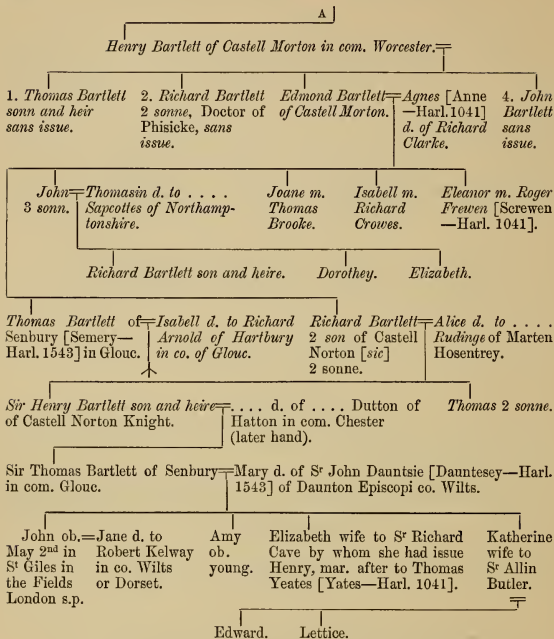 A
Henry Bartlett of Castell Morton in com. Worcester.
1. Thomas Bartlett
sonn and heir
sans issue.
2. Richard Bartlett
2 sonne, Doctor of
Phisicke, sans
issue.
Edmond Bartlett
of Castell Morton.
Agnes [Anne
—Harl. 1041]
d. of Richard
Clarke.
4. John
Bartlett
sans
issue.
John
3 sonn.
Thomasin d. to . . . .
Sapcottes of Northamp-
tonshire.
Joane m.
Thomas
Brooke.
Isabell m.
Richard
Crowes.
Eleanor m. Roger
Frewen [Screwen
—Harl. 1041].
Richard Bartlett son and heire.
Dorothey.
Elizabeth.
Thomas Bartlett of
Senbury [Semery—
Harl. 1543] in Glouc.
Isabell d. to Richard
Arnold of Hartbury
in co. of Glouc.
Richard Bartlett
2 son of Castell
Norton [sic]
2 sonne.
Alice d. to . . . .
Rudinge of Marten
Hosentrey.
Sir Henry Bartlett son and heire
of Castell Norton Knight.
. . . . d. of . . . . Dutton of
Hatton in com. Chester
(later hand).
Thomas 2 sonne.
Sir Thomas Bartlett of Senbury
in com. Glouc.
Mary d. of Sr John Dauntsie [Dauntesey—Harl.
1543] of Daunton Episcopi co. Wilts.
John ob.=
May 2nd in
St Giles in
the Fields
London s.p.
Jane d. to
Robert Kelway
in co. Wilts
or Dorset.
Amy
ob.
young.
Elizabeth wife to Sr Richard
Cave by whom she had issue
Henry, mar. after to Thomas
Yeates [Yates—Harl. 1041].
Katherine
wife to
Sr Allin
Butler.
Edward.
Lettice.